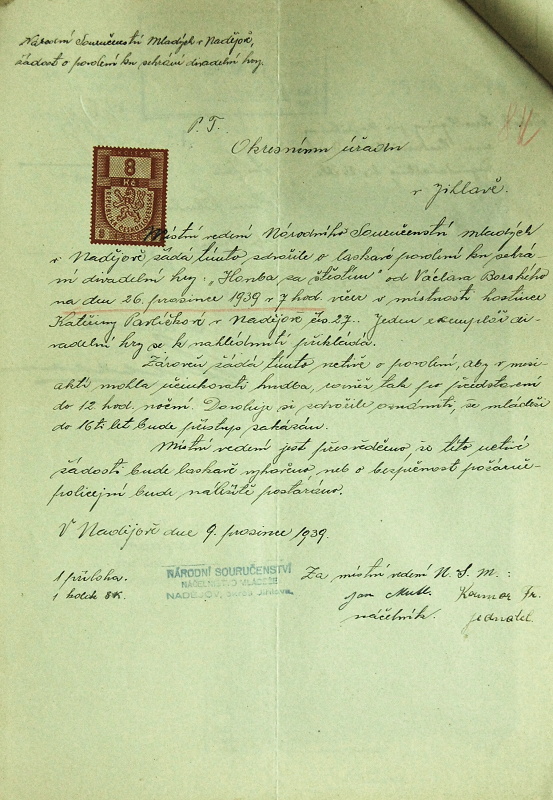 Národní Souručenství Mladých v Nadějově,
žádost o povolení ku sehrání divadelní hry.
P. T.
Okresnímu úřadu
v Jihlavě.
8
Kč
REPUBLIKA ČESKOSLOVENSKÁ
Místní vedení Národního Souručenství mladých
v Nadějově, žádá tímto, zdvořile o laskavé povolení ku sehrá-
ní divadelní hry: „Honba za štěstím" od Václava Borského
na den 26. prosince 1939 v 7 hod. večer v místnosti hostince
Kateřiny Pavlíčkové v Nadějově čís 27. Jeden exemplář di-
vadelní hry se k nahlédnutí přikládá.
Zároveň žádá tímto uctivě o povolení, aby v mezi-
aktí mohla účinkovati hudba, rovněž tak po představení
do 12 hod. noční. Dovoluje si zdvořile oznámiti, že mládeži
do 16ti let bude přístup zakázán.
Místní vedení jest přesvědčeno, že této uctivé
žádosti bude laskavě vyhověno, neb o bezpečnost požárně-
policejní bude náležitě postaráno.
V Nadějově dne 9. prosince 1939.
1 příloha.
1 kolek 8K.
NÁRODNÍ SOURUČENSTVÍ
NÁČELNICTVO MLÁDEŽE
NADĚJOV, okres Jihlava.
Za místní vedení N. S. M.:
Jan
náčelník. jednatel.